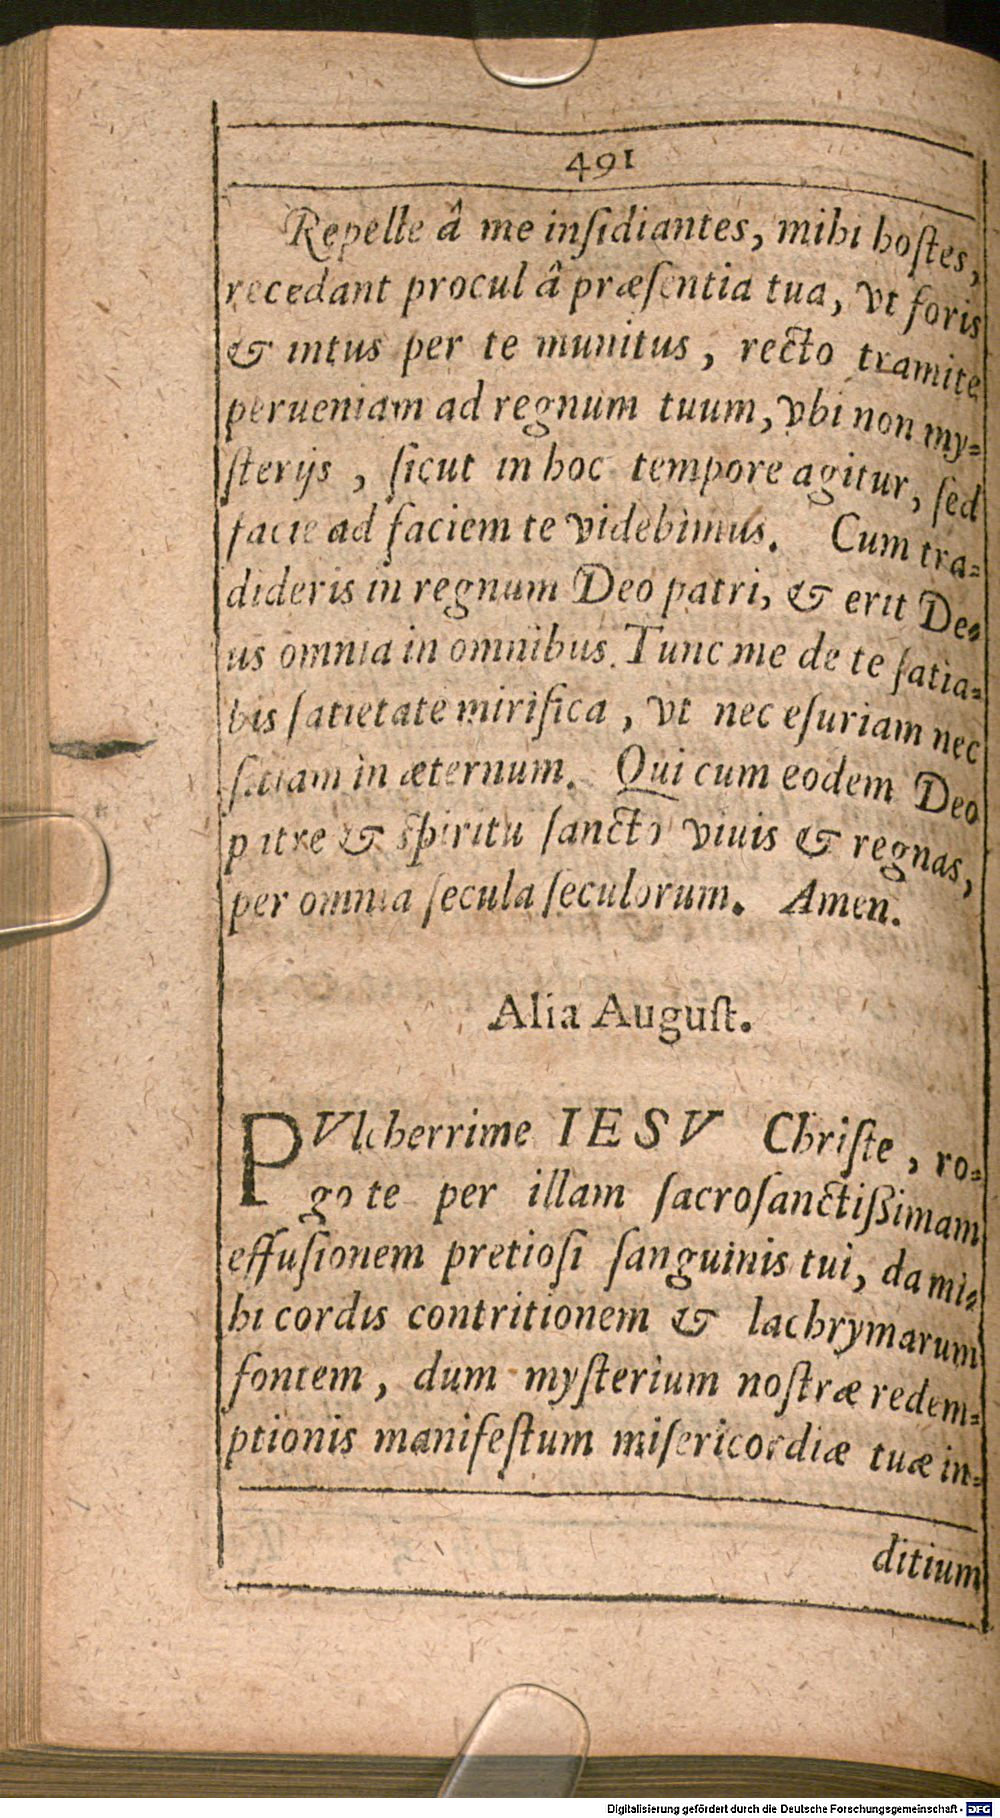 491
Repelle â me inſidiantes, mihi hoſtes,
recedant procul â præſentia tua, vt foris
& intus per te munitus, recto tramite
perueniam ad regnum tuum, vbi non my-
ſterijs, ſicut in hoc tempore agitur, ſed
facie ad faciem te videbimus. Cum tra-
dideris in regnum Deo patri, & erit De-
us omnia in omnibus. Tunc me de te ſatia-
bis ſatietate mirifica, vt nec eſuriam nec
ſitiam in æternum. Qui cum eodem Deo
patre & ſpiritu ſancto viuis & regnas,
per omnia ſecula ſeculorum. Amen.
Alia Auguſt.
PVlcherrime IESV Chriſte, ro-
go te per illam ſacroſanctißimam
effuſionem pretioſi ſanguinis tui, da mi-
hi cordis contritionem & lachrymarum
fontem, dum myſterium noſtræ redem-
ptionis manifeſtum miſericordiæ tuæ in-
ditium
Digitalisierung gefördert durch die Deutsche Forschungsgemeinschaft - DFG